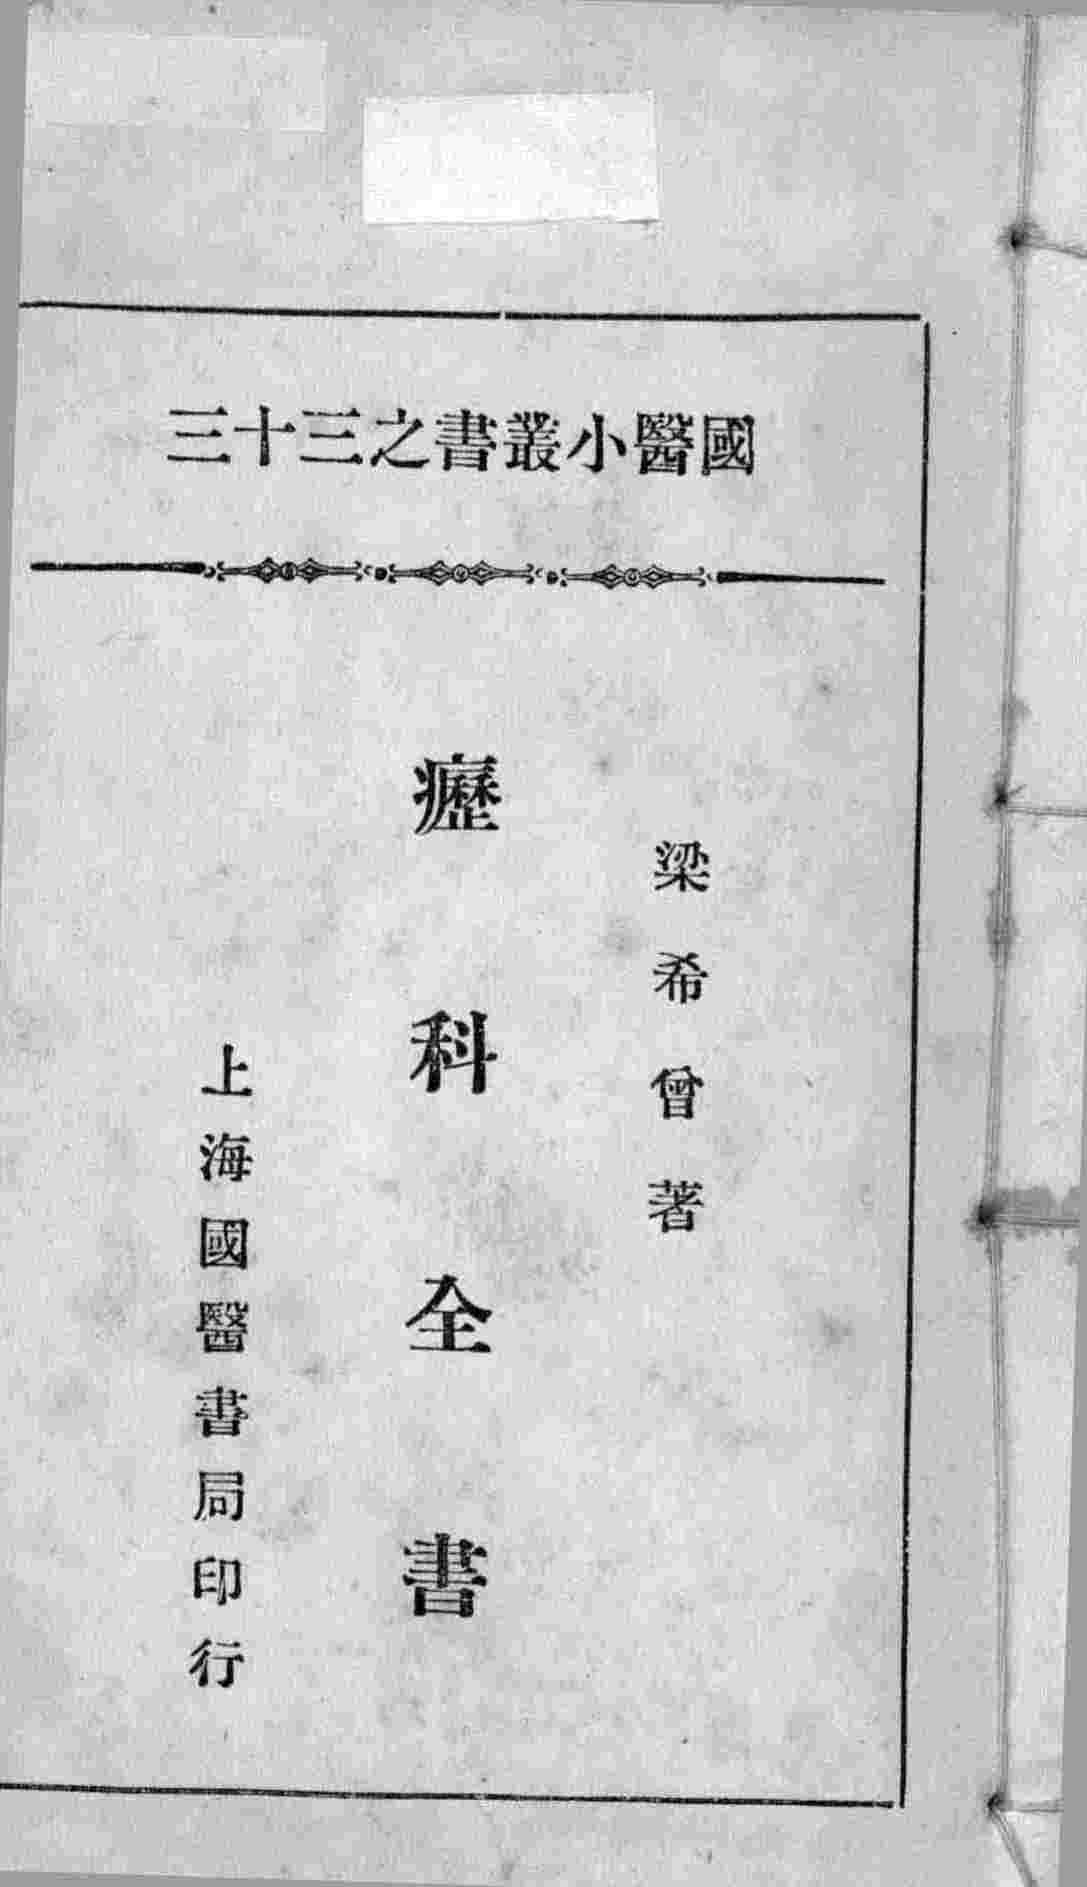 國醫小叢書之三十三
梁希曾著
癧科全書
上海國醫書局印行